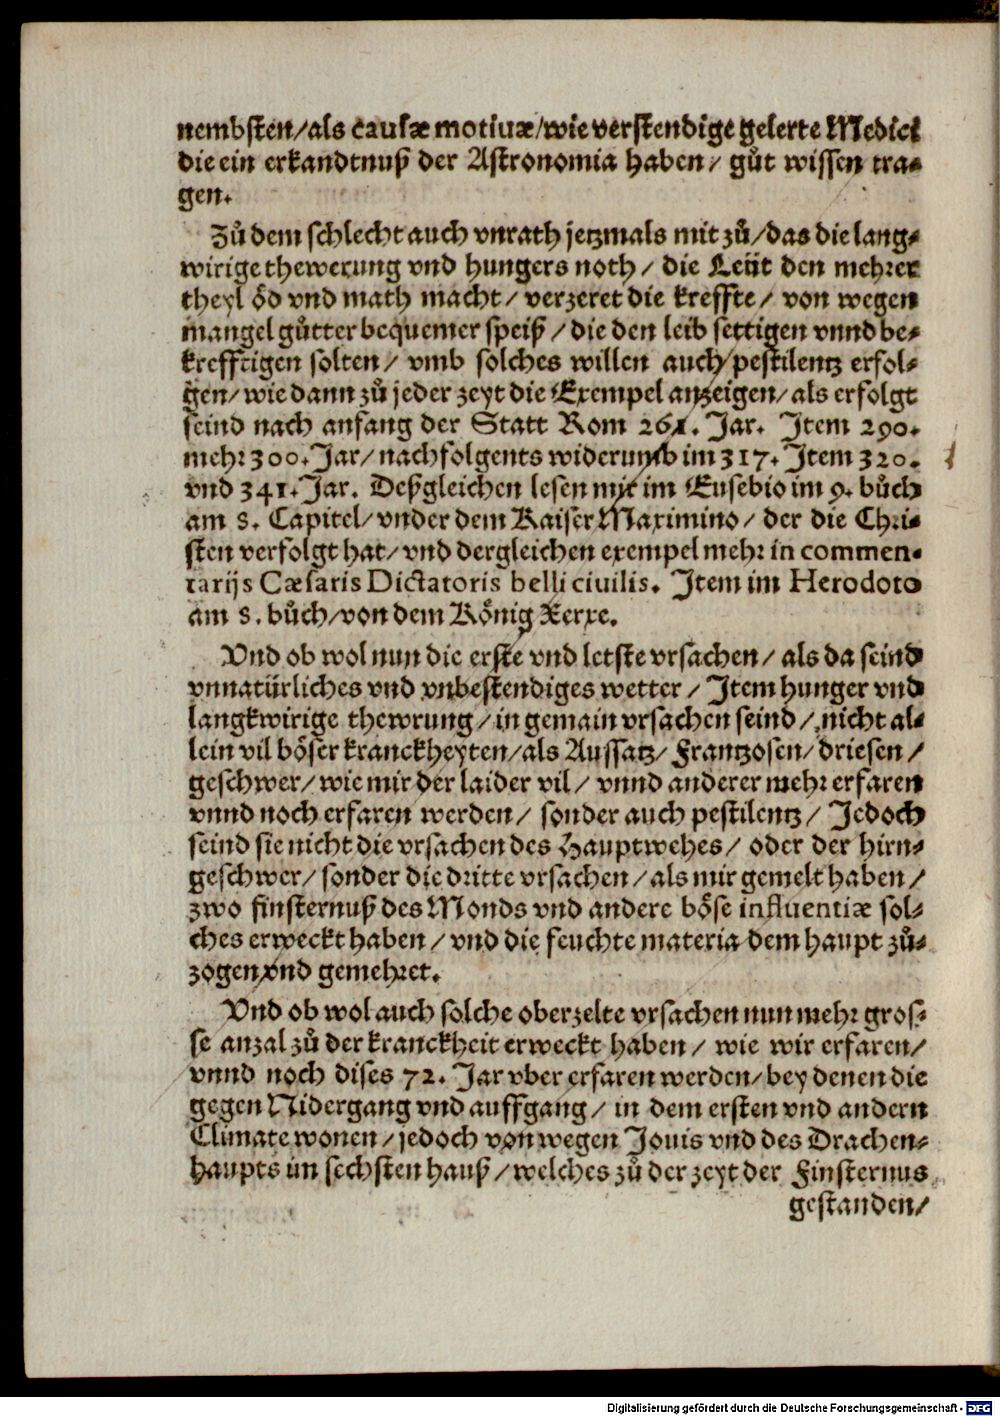 nembsten/als causæ motiuæ/wie verstendige gelerte Medici
die ein erkandtnuß der Astronomia haben/ gůt wissen tra-
gen.
Zů dem schlecht auch vnrath jetzmals mit zů/das die lang-
wirige thewerung vnd hungers noth/ die Leüt den mehrer
theyl öd vnd math macht/ verzeret die kreffte/ von wegen
mangel gůtter bequemer speiß/ die den leib settigen vnnd be-
krefftigen solten/ vmb solches willen auch pestilentz erfol-
gen/ wie dann zů jeder zeyt die Exempel anzeigen/ als erfolgt
seind nach anfang der Statt Rom 261. Jar. Item 290.
mehr 300. Jar/ nachfolgents widerumb im 317. Item 320.
vnd 341. Jar. Deßgleichen lesen mir im Eusebio im 9. bůch
am 8. Capitel/ vnder dem Kaiser Maximino/ der die Chri-
sten verfolgt hat/ vnd dergleichen exempel mehr in commen-
tarijs Cæsaris Dictatoris belli ciuilis. Item im Herodoto
am 8. bůch/von dem König Xerxe.
Vnd ob wol nun die erste vnd letste vrsachen/ als da seind
vnnatürliches vnd vnbestendiges wetter/ Item hunger vnd
langkwirige thewrung/ in gemain vrsachen seind/ nicht al-
lein vil böser kranckheyten/als Aussatz/ Frantzosen/ driesen/
geschwer/ wie mir der laider vil/ vnnd anderer mehr erfaren
vnnd noch erfaren werden/ sonder auch pestilentz/ Jedoch
seind sie nicht die vrsachen des Hauptwehes/ oder der hirn-
geschwer/ sonder die dritte vrsachen/ als mir gemelt haben/
zwo finsternuß des Monds vnd andere böse influentiæ sol-
ches erweckt haben/ vnd die feuchte materia dem haupt zů-
zogen vnd gemehret.
Vnd ob wol auch solche oberzelte vrsachen nun mehr gros-
se anzal zů der kranckheit erweckt haben/ wie wir erfaren/
vnnd noch dises 72. Jar vber erfaren werden/ bey denen die
gegen Nidergang vnd auffgang/ in dem ersten vnd andern
Climate wonen/ jedoch von wegen Jouis vnd des Drachen-
haupts im sechsten hauß/ welches zů der zeyt der Finsternus
gestanden/
Digitalisierung gefördert durch die Deutsche Forschungsgemeinschaft - DFG